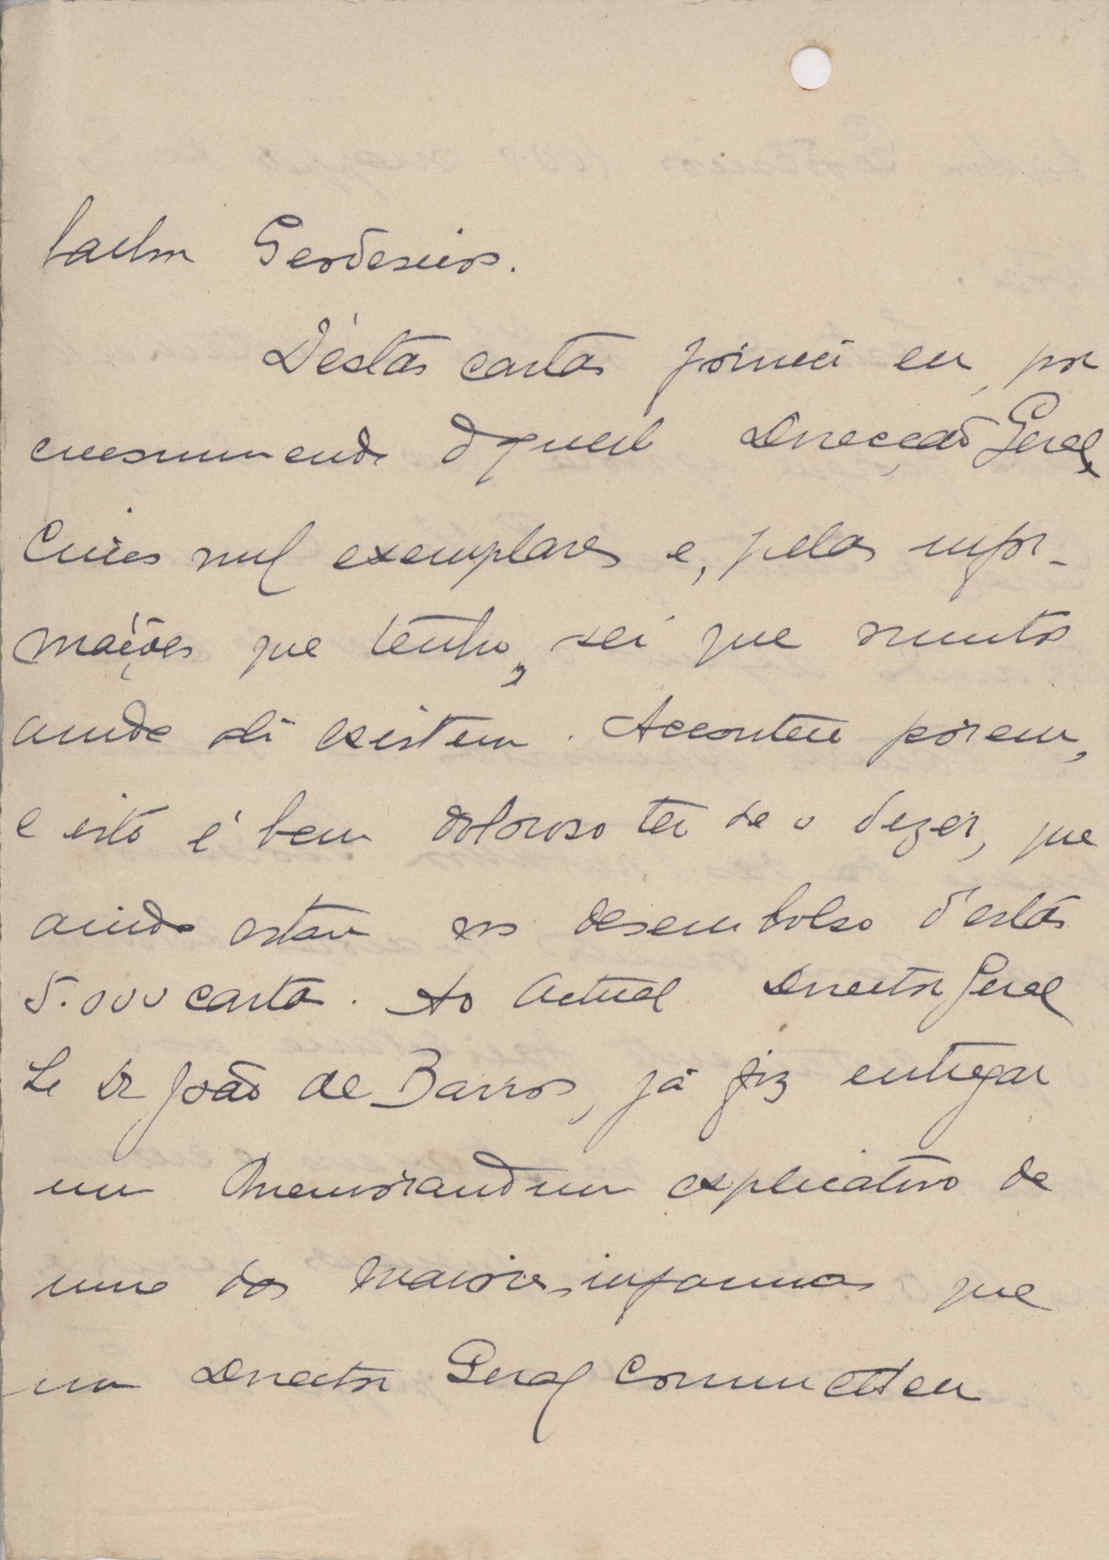 balhos Geodesicos.
D'estas cartas forneci eu, por
encommenda d'aquela Direcção Geral,
Cinco mil exemplares e, pelas infor-
mações que tenho, sei que muitos
ainda ali existem. Acontece porem,
e isto é bem doloroso ter de o dizer, que
ainda estou no desembolso d'estas
5.000 cartas. Ao actual Director Geral
Dr João de Barros, já fiz entregar
um Memorandum explicativo de
uma das maiores infamias que
um Director Geral commetteu